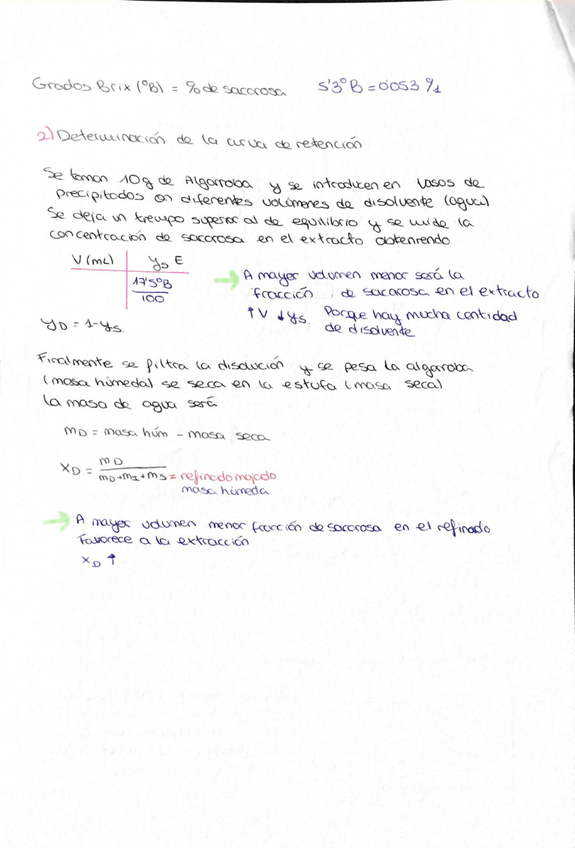 Grados Brix (°B) = % de sacarosa 5'3°B = 0'053 %1
2) Determinación de la curva de retención
Se toman 10g de Algarroba y se introducen en vasos de
precipitados en diferentes volúmenes de disolvente (agua)
Se deja un tiempo superior al de equilibrio y se mide la
concentración de sacarosa en el extracto obtenriendo
V (mL) ys E
17'5°B
100
→ A mayor volumen menor será la
fracción de sacarosa en el extracto
↑V ↓ys. Porque hay mucha cantidad
de disolvente
yD = 1-ys.
Finalmente se filtra la disolución y se pesa la algaroba
(masa húmeda) se seca en la estufa (masa seca)
la masa de agua será
mD = masa húm - masa seca
XD = mD
mD+mI+mS = refinado mojado
masa húmeda
→ A mayor volumen menor fracción de sacarosa en el refinado
Favorece a la extracción
XD ↑